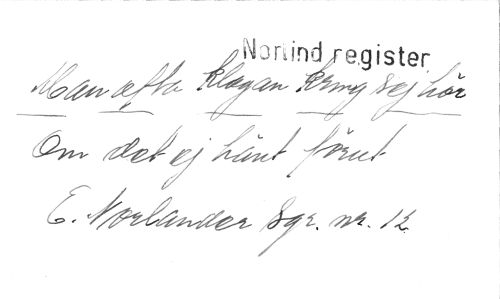 Norlind register
Man ofta klagan kring sej hör
Om det ej hänt förut
E. Norlander Sgr. nr. 12